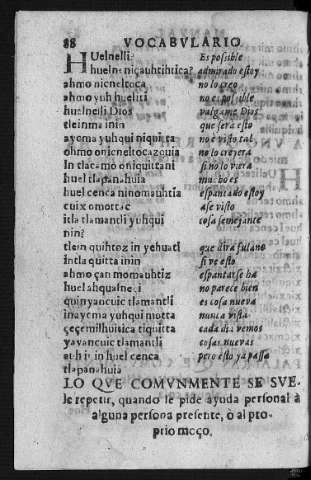 88 VOCABVLARIO
HUelnelli? Es possible
huelneniçauhtihtica? admirado estoy
ahmo nicneltoca no lo creo
ahmo yuh hueliti no es possible
huelnelli Dios valgame Dios
tlein ma inin que sera esto
ayema yuhqui niquitta no è visto tal
ohmo onicneltocazquia no lo creyera
Intlacamo oniquittani si no lo viera
huel tlapanahuia mucho es
huel cenca ninomauhtia espantado estoy
cuix omottac ase visto
itla tlamantli yuhqui cosa semejante
nin?
tlein quihtoz in yehuatl que dira fulano
intla quitta inin si ve esto
ahmo çan momauhtiz espantarse ha
huel ahqualneci no parece bien
quinyancuic tlamantli es cosa nueva
inayema yuhqui motta nunca vista
çeçemilhuitica tiquitta cada dia vemos
yayancuic tlamantli cosas nuevas
huel cenca pero esto ya passa
tlapanahuia
LO QVE COMVNMENTE SE SVE-
le repetir, quando se pide ayuda personal à
alguna persona presente, ò al pro-
prio moço.